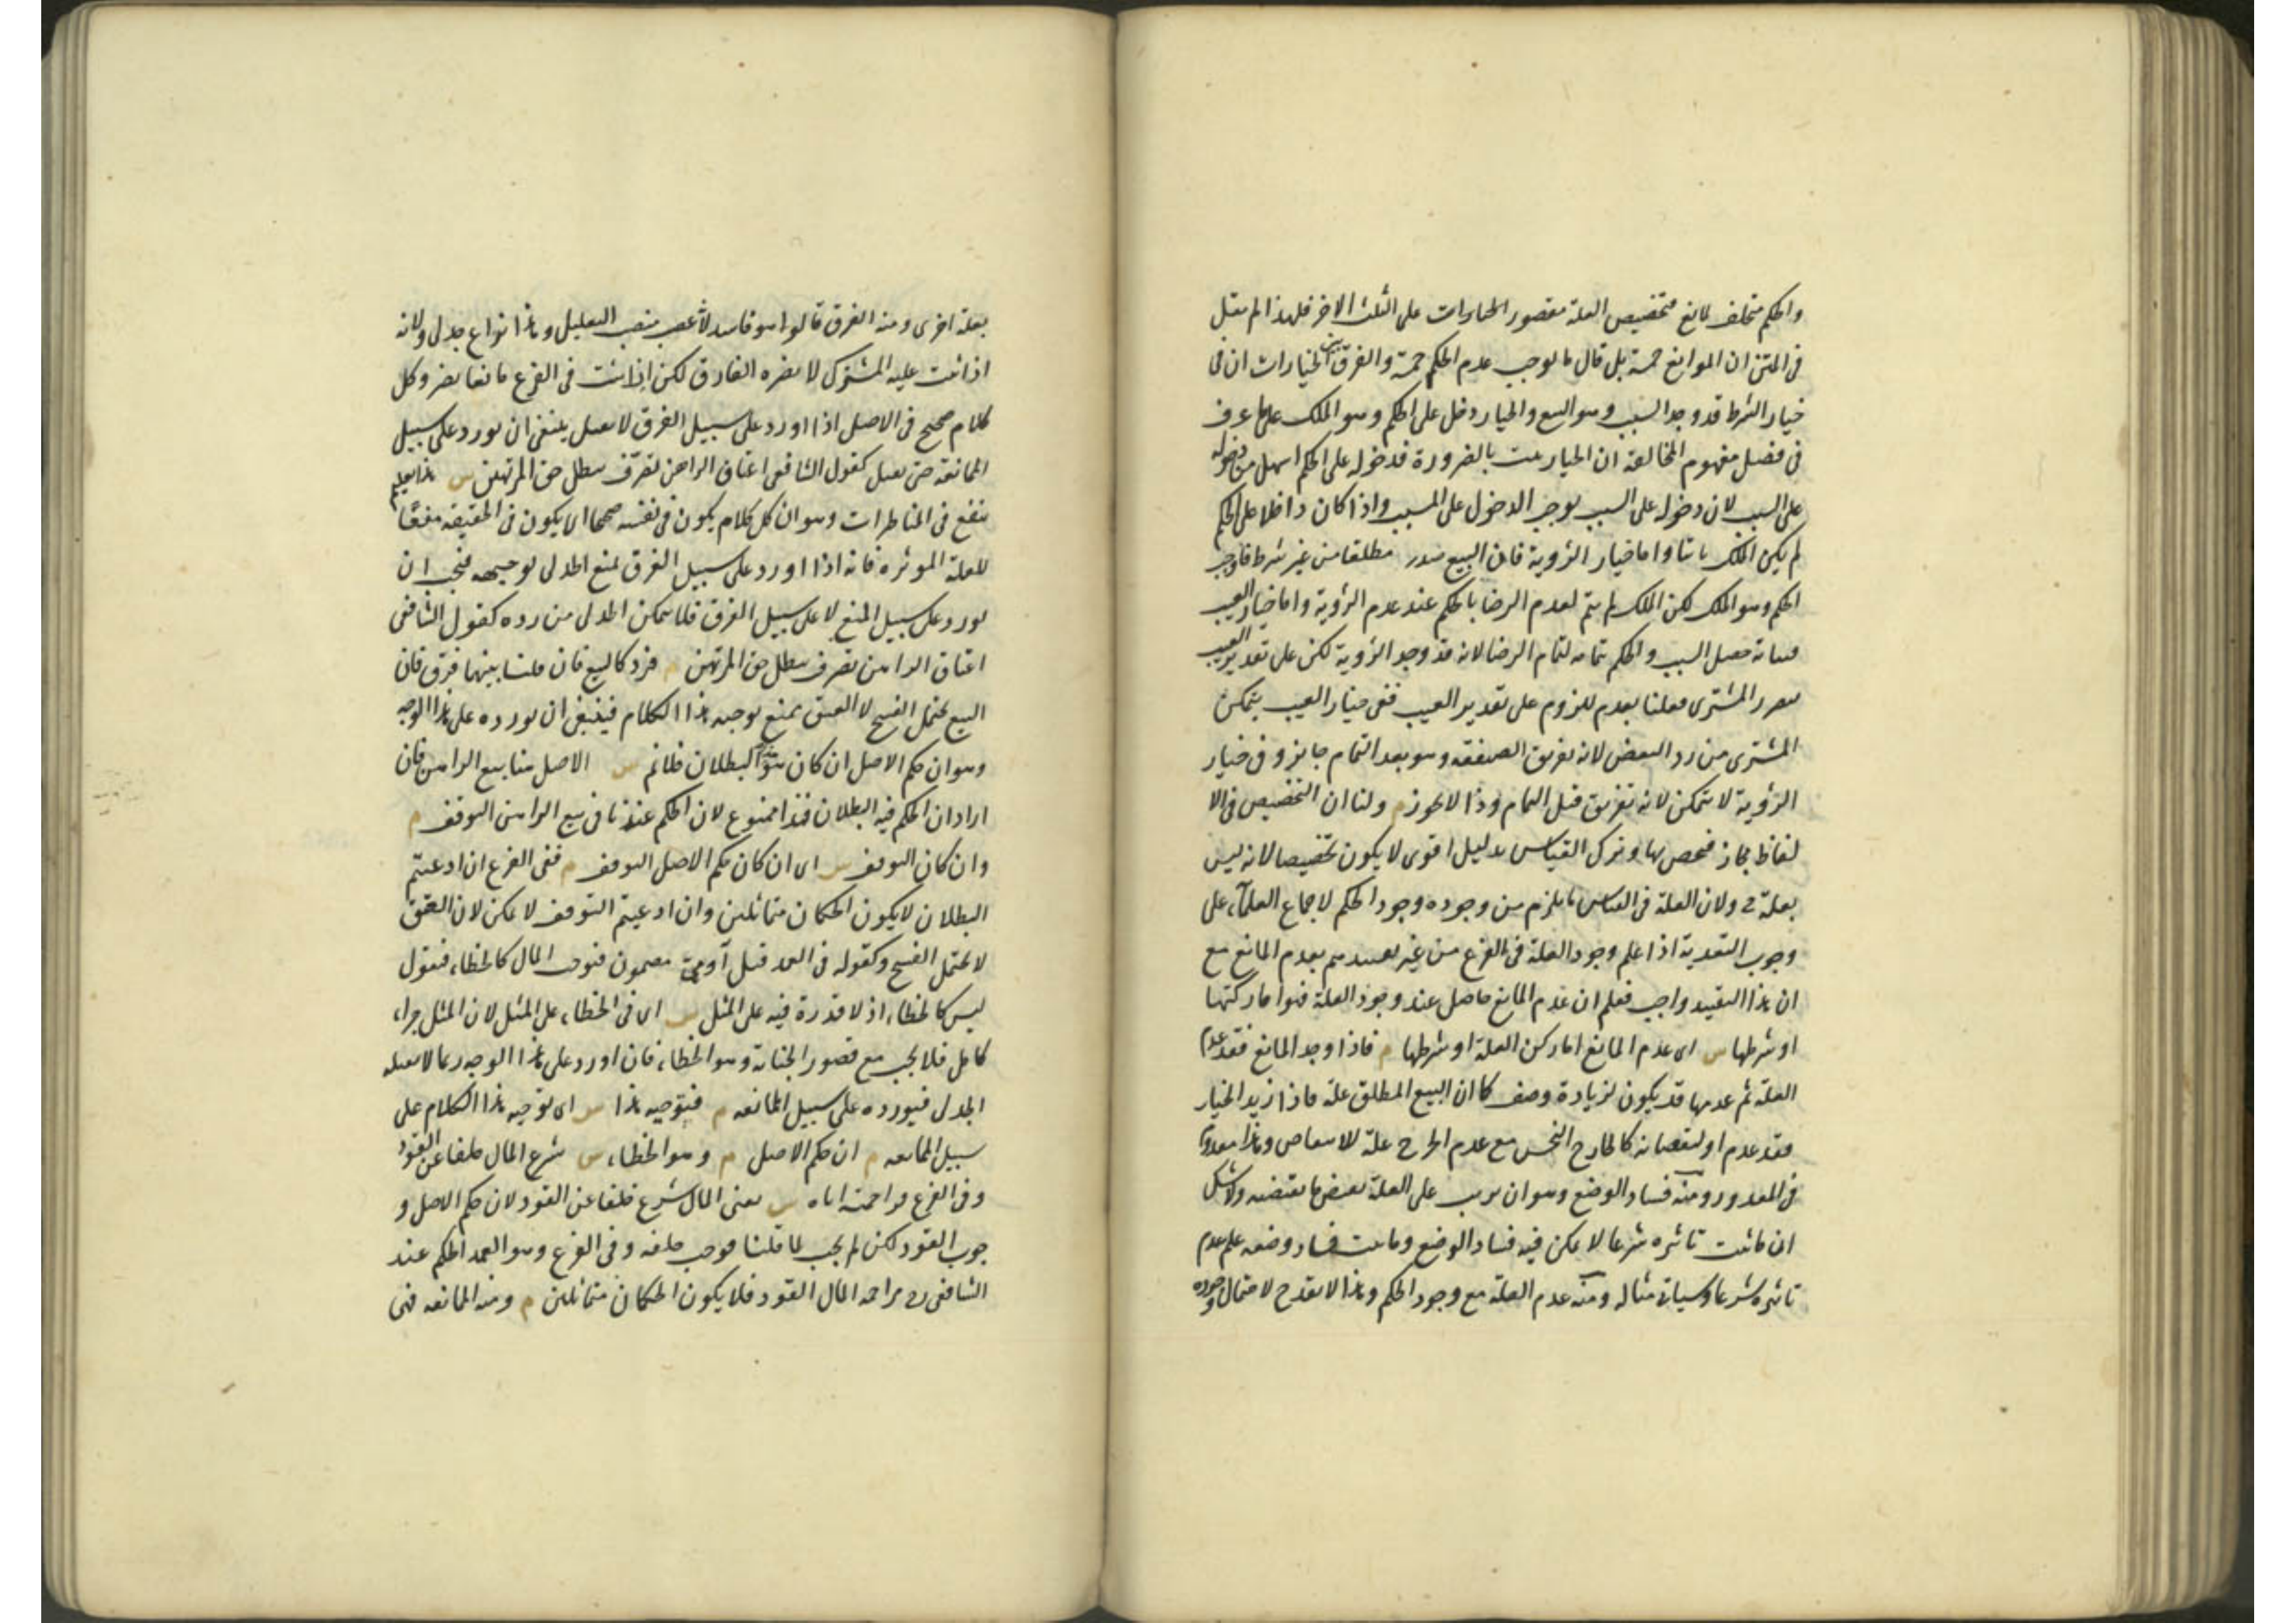 والحكم متخلف لمانع فتخصيص العلة مقصور الخيارات على الثلث الاخر فلهذا لم يقل
فى المتن ان الموانع خمسة بل قال ما يوجب عدم الحكم خمسة والفرق بين الخيارات ان فى
خيار الشرط قد وجد السبب وهو البيع والخيار دخل على الحكم وهو الملك على ما عرف
فى فصل مفهوم المخالفة ان الخيار يثبت بالضرورة فدخوله على الحكم اسهل من دخوله
على السبب لان دخوله على السبب يوجب الدخول على المسبب واذا كان داخلا على الحكم
لم يكن الملك ثابتا واما خيار الرؤية فان البيع صدر مطلقا من غير شرط فاوجب
الحكم وهو الملك لكن الملك لم يتم لعدم الرضا بالحكم عند عدم الرؤية واما خيار العيب
فبيانه حصل السبب والحكم بتمامه لتمام الرضا لانه قد وجد الرؤية لكن على تقدير العيب
يتضرر المشترى فعلنا بعدم اللزوم على تقدير العيب ففى خيار العيب يتمكن
المشترى من رد البعض لانه تفريق الصفقة وهو بعد التمام جايز وفى خيار
الرؤية لا يتمكن لانه تفريق قبل التمام وذا لا يجوز م ولنا ان التخصيص فى الا
لفاظ مجاز فيخص بها وترك القياس بدليل اقوى لا يكون تخصيصا لانه ليس
بعلة ح ولان العلة فى القياس ما يلزم من وجوده وجود الحكم لاجماع العلماء على
وجوب التعدية اذا علم وجود العلة فى الفرع من غير تقييدهم بعدم المانع مع
ان هذا التقييد واجب فعلم ان عدم المانع حاصل عند وجود العلة فهو اما ركنها
او شرطها س اى عدم المانع اما ركن العلة او شرطها م فاذا وجد المانع فقد عدم
العلة ثم عدمها قد يكون لزيادة وصف كما ان البيع المطلق علة فاذا زيد الخيار
فقد عدم او لنقصانه كالخارج النجس مع عدم الحرج علة للانتقاض وهذا معدوم
فى المعذور ومنه فساد الوضع وهو ان يرتب على العلة نقيض ما يقتضيه ولا شك
ان ما ثبت تاثيره شرعا لا يمكن فيه فساد الوضع وما ثبت فساد وضعه علم عدم
تاثيره شرعا وسياتى مثاله ومنه عدم العلة مع وجود الحكم وهذا لا يقدح لاحتمال وجوده
بعلة اخرى ومنه الفرق قالوا هو فاسد لانه غصب منصب التعليل وهذا نزاع جدلى ولانه
اذا اثبت عليه المشترك لا يضره الفارق لكن اذا اثبت فى الفرع مانعا يضر وكل
كلام صحيح فى الاصل اذا اورد على سبيل الفرق لا يقبل ينبغى ان يورد على سبيل
الممانعة حتى يقبل كقول الشافعى اعتاق الراهن تصرف يبطل حق المرتهن س هذا تعليم
ينفع فى المناظرات وهو ان كل كلام يكون فى نفسه صحيحا اى يكون فى الحقيقة منعا
للعلة المؤثرة فانه اذا اورد على سبيل الفرق يمنع الجدلى توجيهه فيجب ان
يورد على سبيل المنع لا على سبيل الفرق فلا يتمكن الجدلى من رده كقول الشافعى
اعتاق الراهن تصرف يبطل حق المرتهن م فرد كالبيع فان قلنا بينهما فرق فان
البيع يحتمل الفسخ لا العتق يمنع توجيه هذا الكلام فينبغى ان نورده على هذا الوجه
وهو ان حكم الاصل ان كان هو البطلان فلا نم س الاصل هنا بيع الراهن فان
اراد ان الحكم فيه البطلان فهذا ممنوع لان الحكم عندنا فى بيع الراهن التوقف م
وان كان التوقف س اى ان كان حكم الاصل التوقف م ففى الفرع ان ادعيتم
البطلان لا يكون الحكمان متماثلين وان ادعيتم التوقف لا يمكن لان العتق
لا يحتمل الفسخ وكقوله فى العمد قتل آدمى مضمون فيوجب المال كالخطاء فنقول
ليس كالخطاء اذ لا قدرة فيه على المثل س اى فى الخطاء على المثل لان المثل جزاء
كامل فلا يجب مع قصور الجناية وهو الخطاء فان اورد على هذا الوجه ربما لا يقبله
الجدلى فنورده على سبيل الممانعة م فتوجيه هذا س اى توجيه هذا الكلام على
سبيل الممانعة م ان حكم الاصل م وهو الخطاء س شرع المال خلفا عن القود
وفى الفرع مزاحمته اياه س يعنى المال شرع خلفا عن القود لان حكم الاصل و
جوب القود لكن لم يجب لما قلنا فوجب خلفه وفى الفرع وهو العمد الحكم عند
الشافعى رح مزاحمة المال القود فلا يكون الحكمان متماثلين م ومنه الممانعة فهى